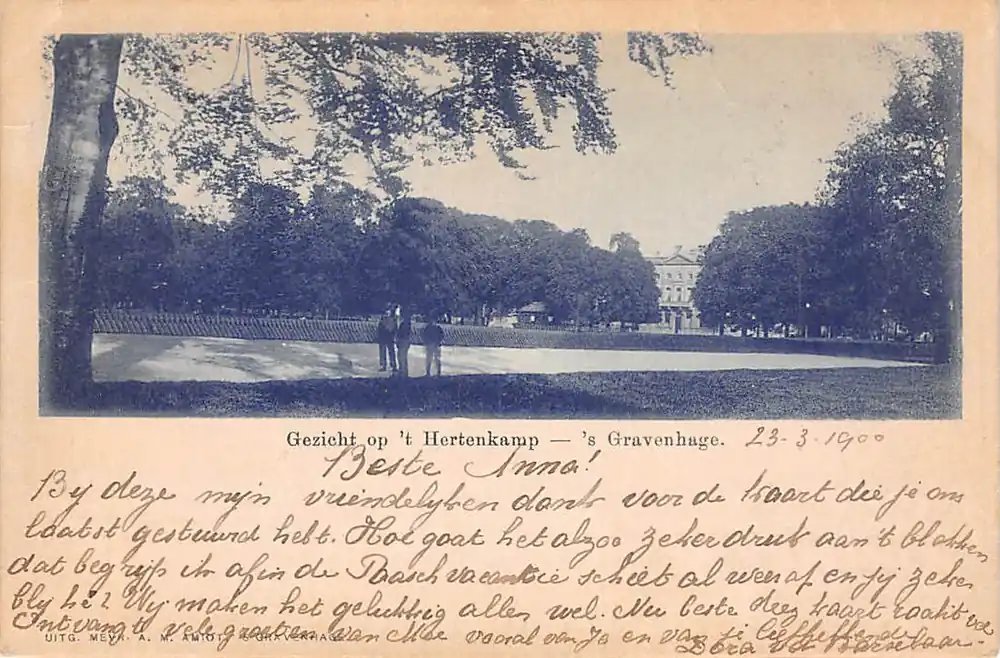 Gezicht op 't Hertenkamp — 's Gravenhage. 23-3-1900
Beste Anna!
By deze mijn vriendelyken dank voor de kaart die je ons
laatst gestuurd hebt. Hoe gaat het alzoo zeker druk aan 't blokken
dat begrijp ik afin de Paaschvacantie schiet al weer af en jij zeker
blij hé? Wij maken het gelukkig allen wel. Nu beste deez kaart raakt vol
Ontvangt vele groeten van Moe vooral van Jo en van je liefhebbende
UITG. MEVR. A. M. AMIOT, 'S GRAVENHAGE
Dora vd